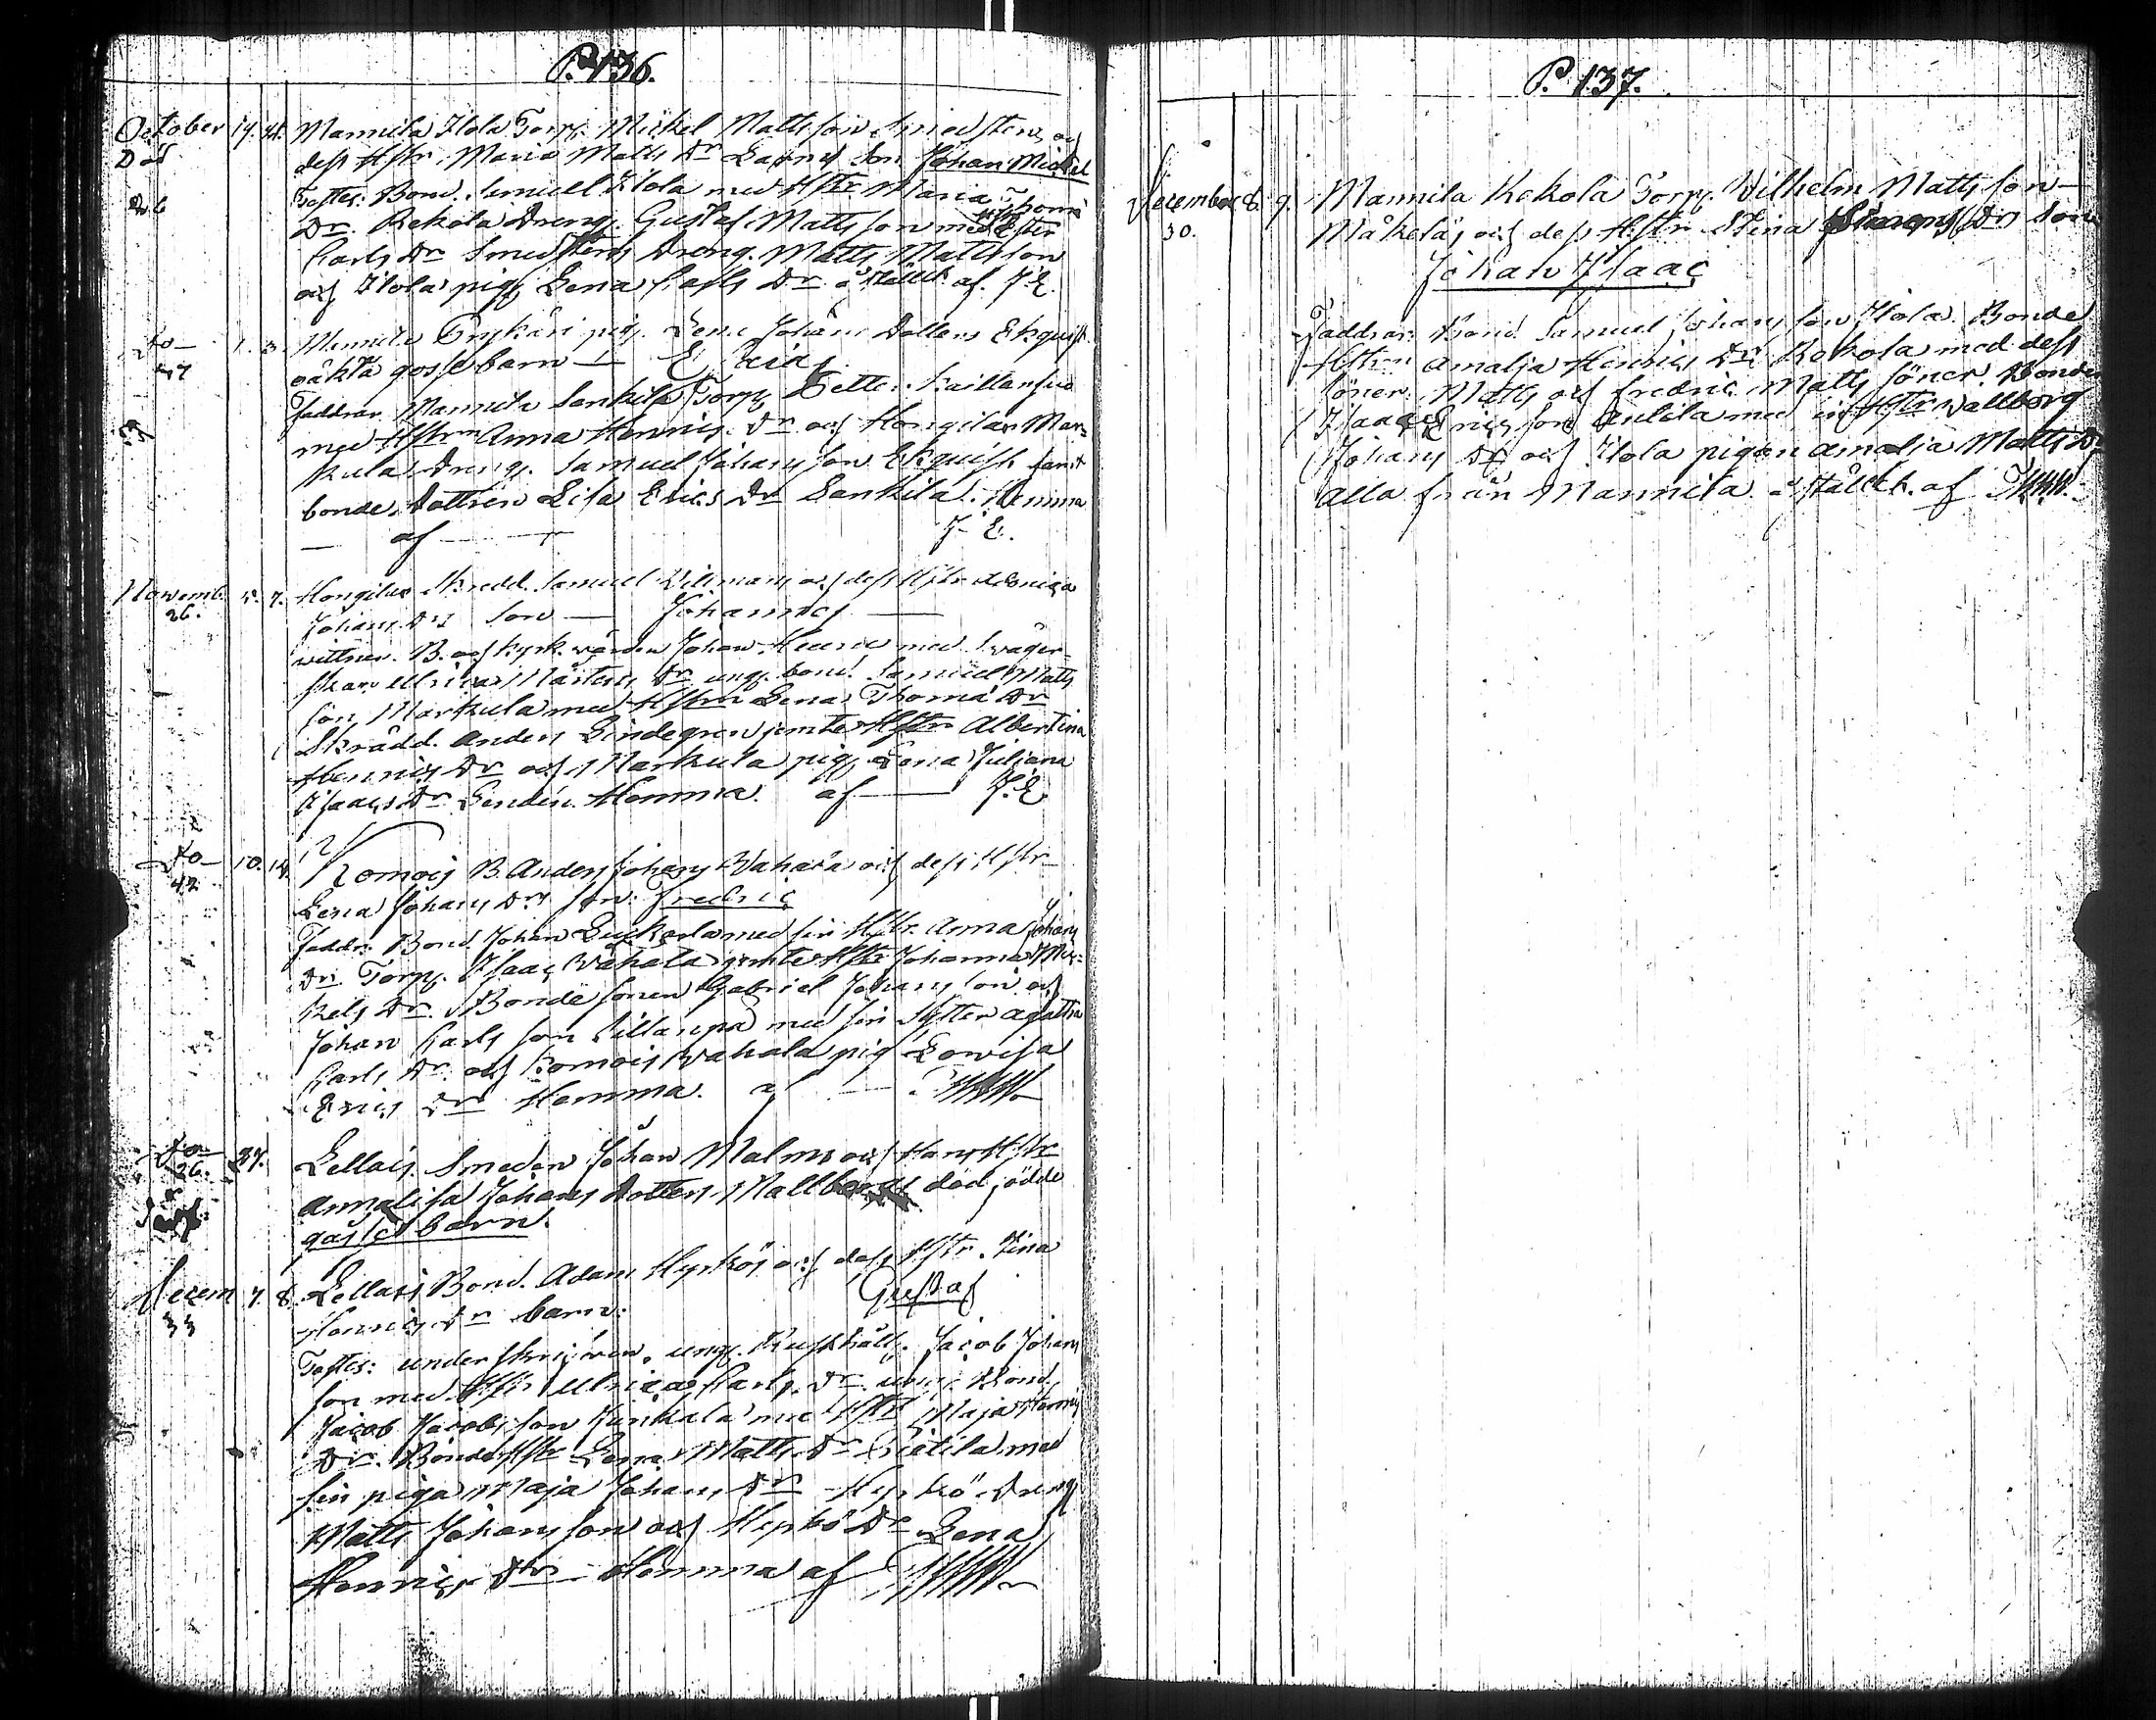 P. 136.
October 19. 21. Mannila Ilola Torp. Mickel Mattsson Smedsten och
Död dess Hstr. Maria Matts Dr Son Johan Mickel
26 Testes: Bond. Samuel Ilola med Hstr Maria Thomæ
Dr. Rekola Dreng. Gustaf Mattsson med Hstr
Carls Dr Smedstens Dreng. Matts Mattsson
och Ilola pig. Lena Carls Dr. af J. E.
Dto 1. 3. pig. Lena Johans Dotters Ekquist
27 oäkta gossebarn — Eric
Faddrar Mannila Sankila Torp.
med Hstrn Anna Henrics Dr och Hongilax Mar=
kula Dreng. Samuel Johansson Ekquist samt
bonde Dottren Lisa Erics Dr Sankila. Hemma
— af — J. E.
Novemb. 5. 7. Hongilax Skredd. Samuel och dess Hstr
26. Johans Dr Son — Johannes —
wittnen. B. och Kyrk.wärden Johan med Swäger-
skan Ulrica Mårtens Dr ung. bond. Samuel Matts
son Markula med Hstrn Lena Thomæ Dr
Skrädd. Anders Lindegren jemte Hstr Albertina
Henrics Dr och Markula pig. Lena Juliana
Isaacs Dr Hemma. af — J. E.
Dto 10. 14. Romois B. Anders Johans Wahala och dess Hstr
42 Lena Johans Dr son: Fredric
Faddr. Bond. Johan med sin Hstr. Anna Johans
Dr Torp. Isaac Wahala jemte Hstr Johanna Mic=
kels Dr. Bonde sonen Gabriel Johansson och
Johan Carls son Sillanpä med sin Syster Agatha
Carls Dr. och Romois Wahala pig Lowisa
Erics Dr Hemma. af —
Dto 27. Lellais Smeden Johan Malm och Hans Hstr
26. Annalisa Johans Dotters Mallberg dödfödde
gossebarn.
Decem 7. 8. Lellais Bond. Adam Hyrkös och dess Hstr. Stina
33 Henrics Dr barn: Gustaf
Testes: underskrifwen, ung. Rusthåll. Jacob Johans
son med Hstr Ulrica Carls Dr. ung. Bond.
Jacob Jacobs son med Hstr Maja Henrics
Dr. Bonde Hstr Lena Matts Dr Pietila med
sin piga Maja Johans Dr Hyrkö Dreng
Matts Johansson och Hyrkö Dr Lena
Henrics Dr — Hemma af
P. 137.
December 8. 9. Mannila Rekola Torp. Wilhelm Mattsson
30. Mäkelä, och dess Hstr Stina Simons Dr Son
Johan Isaac
Faddrar: Bond. Samuel Johansson Ilola. Bonde
Hstrn Amalia Henrics Dr Rekola med dess
Söner Matts och Fredric Matts Söner. Bonden
Isaac Ericsson Anlila med sin Hstr Wallborg
Johans Dr och Ilola pigan Amalia Matts Dr
alla från Mannila. af